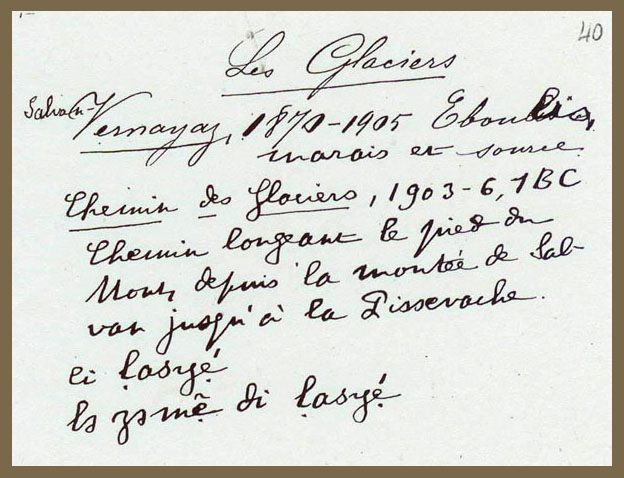 40
Les Glaciers
Salvan-
Vernayaz, 1870-1905 Eboulis,
marais et source.
Chemin des Glaciers, 1903-6, 1BC
Chemin longeant le pied du
Mont, depuis la montée de Sal-
van jusqu'à la Pissevache.